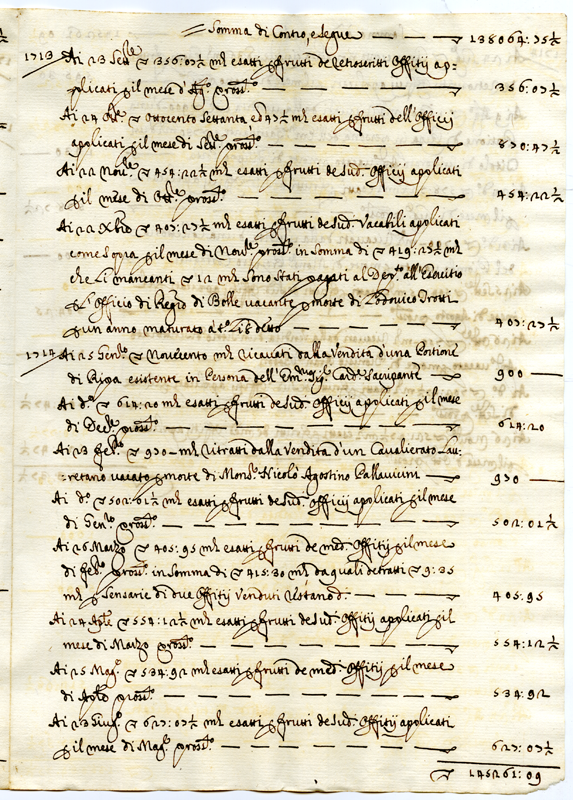 Somma di Contro, e segue — 138064:75½
1713 Ai 23 Sett.re ▽ 356:07½ mta esatti p frutti de retroscritti Offitij ap-
plicati p il mese d' pross.o — 356:07½
Ai 24 ▽ Ottocento Settanta e 47½ mta esatti p frutti dell'Offitij
applicati p il mese di Sett.re pross.o — 870:47½
Ai 22 Nov.re ▽ 454:22½ mta esatti p frutti de Sud.i Offitij applicati
p il mese di Ott.re pross.o — 454:22½
Ai 22 Xbre ▽ 407:27½ mta esatti p frutti de Sud.i Vacabili applicati
come Sopra p il mese di Nov.re pross.o in Somma di ▽ 419:27½ mta
che li mancanti ▽ 12 mta Sono Stati pagati al
p l'Officio di Regio di Bolle vacante p morte di Lodovico Trotti
p un anno maturato detto — 407:27½
1714 Ai 25 Gen.ro ▽ Novecento mta ricavati dalla Vendita d'una Portione
di Ripa esistente in Persona dell'Em.mo Sig.r Card.e Sacripante — 900 —
Ai d.o ▽ 614:20 mta esatti p frutti de Sud.i Offitij applicati p il mese
di Dec.re pross.o — 614:20
Ai 23 Feb.ro ▽ 930 — mta ritratti dalla Vendita d'un Cavalierato Lau-
retano vacato p morte di Mons.r Nicolò Agostino Pallavicini — 930 —
Ai d.o ▽ 502:01½ mta esatti p frutti de Sud.i Offitij applicati p il mese
di Gen.ro pross.o — 502:01½
Ai 26 Marzo ▽ 405:95 mta esatti p frutti de med.i Offitij p il mese
di Feb.ro pross.o in Somma di ▽ 415:30 mta da quali detratti ▽ 9:35
mta p Sensarie di due Offitij Venduti — 405:95
Ai 24 Aple ▽ 554:12½ mta esatti p frutti de Sud.i Offitij applicati p il
mese di Marzo pross.o — 554:12½
Ai 25 Mag.o ▽ 534:92 mta esatti p frutti de med.i Offitij p il mese
di pross.o — 534:92
Ai 23 Giug.o ▽ 627:07½ mta esatti p frutti de Sud.i Offitij applicati
p il mese di Mag.o pross.o — 627:07½
▽ 145261:09